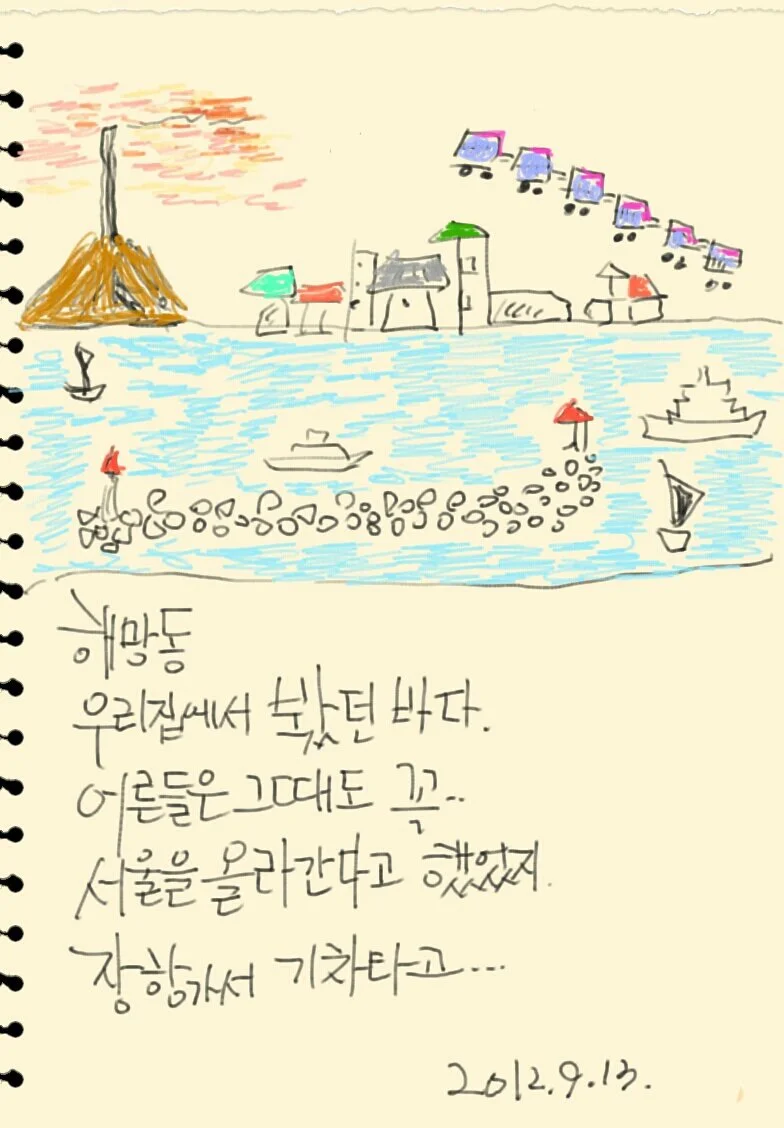 해망동
우리집에서 봤던 바다.
어른들은 그때도 꼭..
서울을 올라간다고 했었지.
장항가서 기차타고...
2012.9.13.